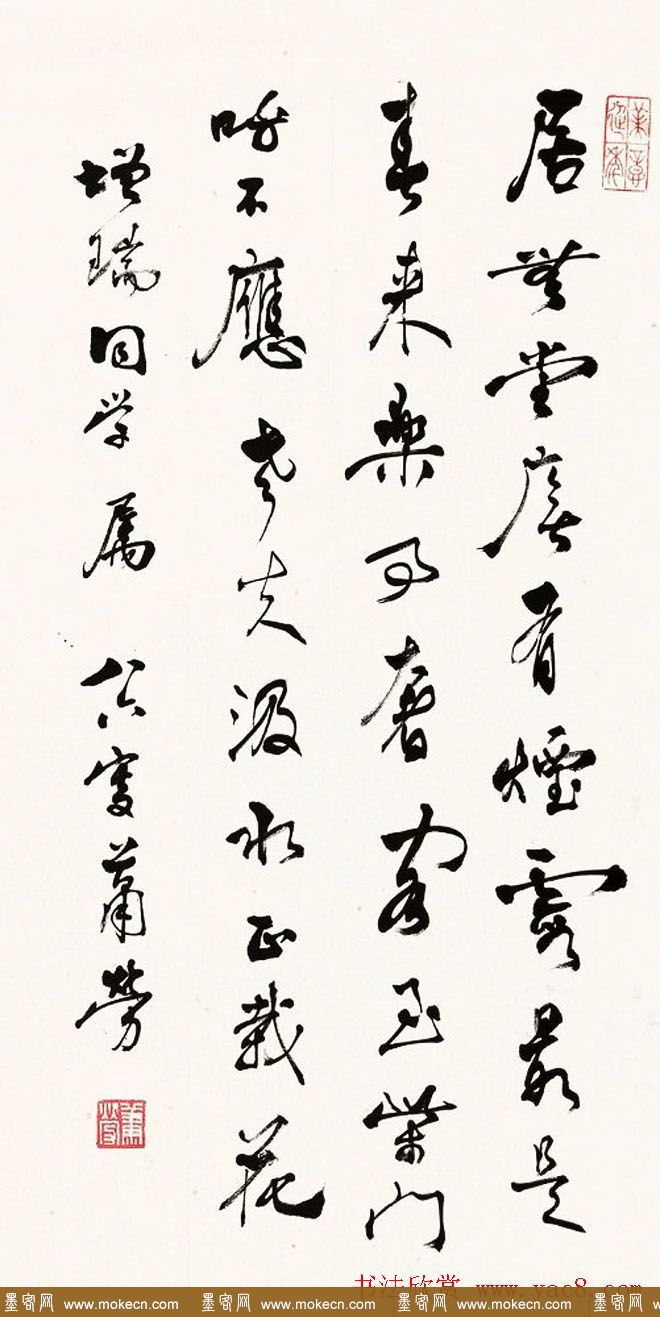 居無堂有煙霞最是
春来樂事奢客至柴門
呼不應老夫汲水正栽花
增瑞同学属 八六叟蕭勞
书法欣赏 www.yac8.com
墨客网 www.mokecn.com 墨客网 www.mokecn.com 墨客网 www.mokecn.com 墨客网 www.mokecn.com